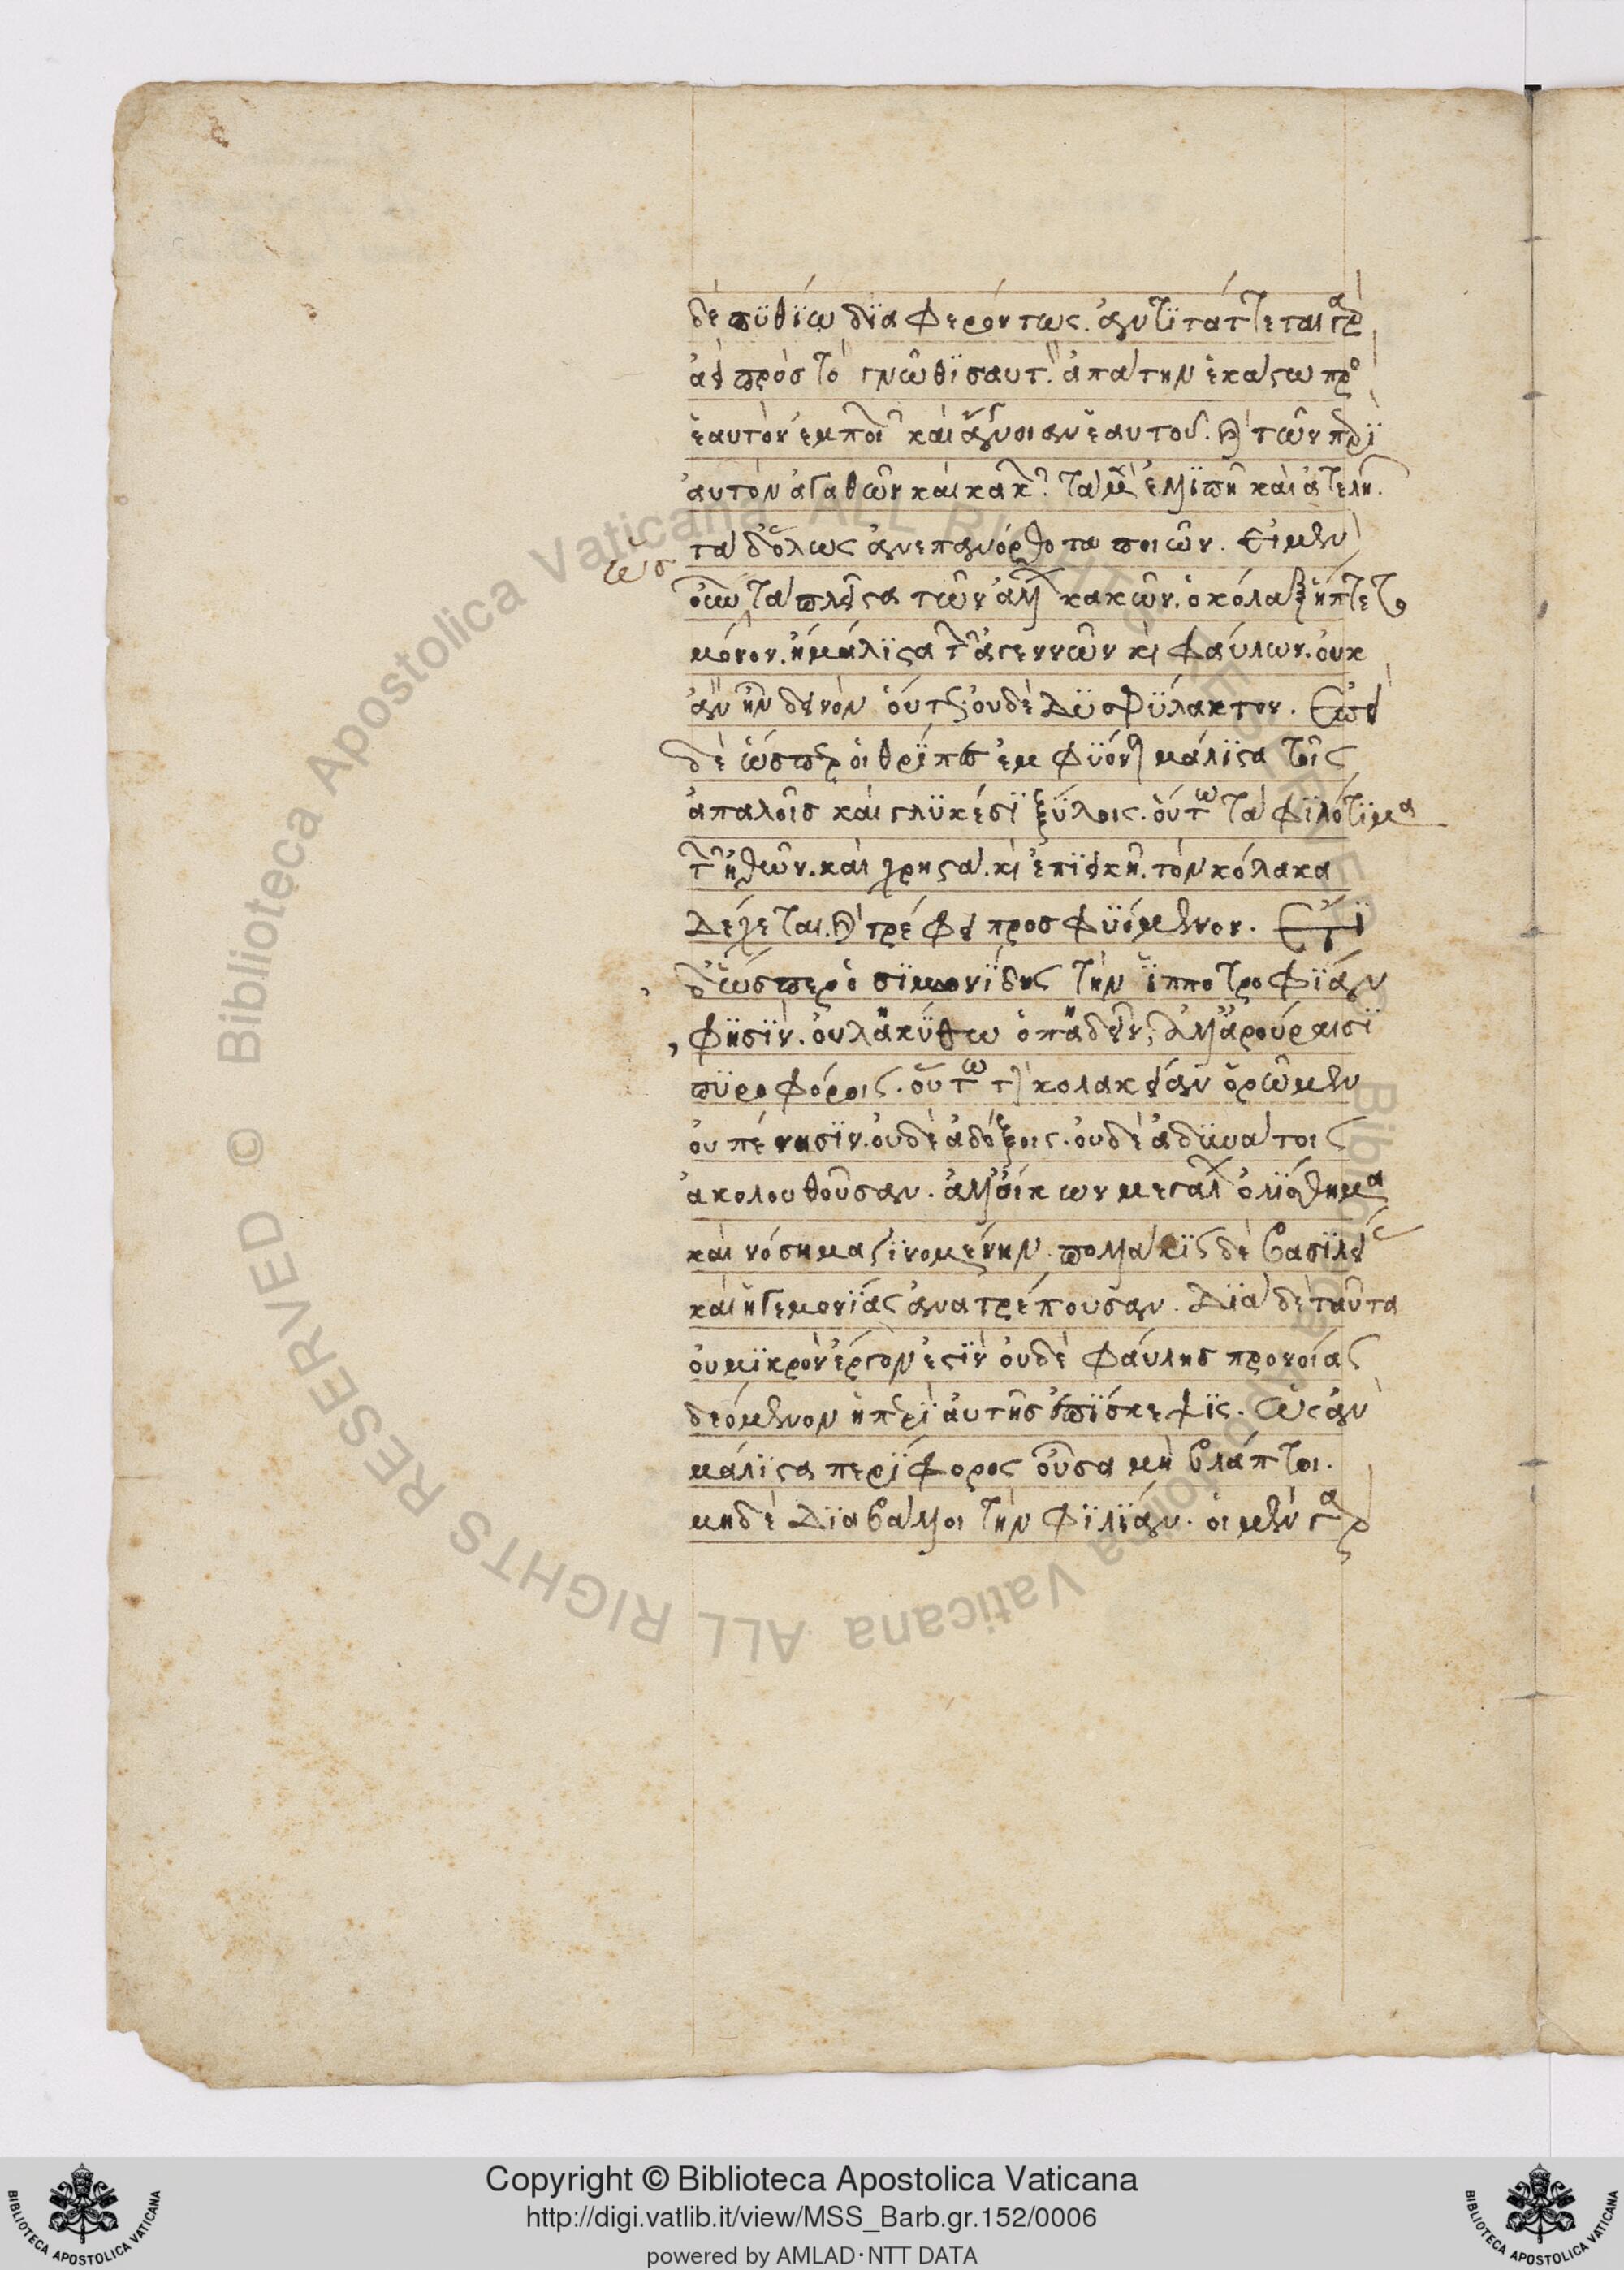 δὲ πϋθΐω δϊαφερόντως. ἀντϊτάττεται γὰρ
ἀεὶ πρὸσ τὸ γνῶθϊ σαυτὸν. ἀπάτην ἑκάστω πρὸς
ἑαυτὸν ἐμποιῶν καὶ ἄγνοιαν ἑαυτοῦ. καὶ τῶν περὶ
αὑτὸν ἀγαθῶν καὶ κακῶν. τὰ μὲν ἐλλϊπῆ καὶ ἀτελῆ.
τὰ δ' ὅλως ἀνεπανόρθοτα ποιῶν. Εἰ μὲν
ωσ
οὖν τὰ πλεῖστα τῶν ἄλλων κακῶν. ὁ κόλαξ ἥπτετο
μόνον. ἢ μάλϊστα τῶν ἀγεννῶν καὶ φαύλων. οὐκ
ἂν ἦν δεινὸν οὕτως οὐδὲ δϋσφϋλακτον. Ἐπεὶ
δὲ ὥσπερ οἱ θρΐπες ἐμφϋονται μάλϊστα τοῖς
ἁπαλοῖσ καὶ γλϋκέσϊ ξϋλοις. οὕτω τὰ φϊλότϊμα
τῶν ἠθῶν. καὶ χρηστὰ. καὶ ἐπϊεικῆ. τὸν κόλακα
δέχεται. καὶ τρέφει προσφϋόμενον. Ἔτϊ
δ' ὥσπερ ὁ σϊμονΐδης τὴν ἱπποτροφΐαν
φησϊν. οὐ λακϋθω ὀπαδεῖν, ἀλλ' ἀρούραισϊ
πϋροφόροις. οὕτω τὴν κολακείαν ὁρῶμεν
οὐ πένησϊν. οὐδὲ ἀδόξοις. οὐδὲ ἀδϋνάτοις
ἀκολουθοῦσαν. ἀλλ' οἴκων μεγάλων ὀλΐσθημα
καὶ νόσημα γϊνομένην. πολλάκϊς δὲ βασϊλείας
καὶ ἡγεμονΐας ἀνατρέπουσαν. Δϊὰ δὲ ταῦτα
οὐ μϊκρὸν ἔργον ἐστϊν οὐδὲ φαύλησ προνοίας
δεόμενον ἡ περὶ αὐτῆσ ἐπϊσκεψϊς. ὡς ἂν
μάλϊστα περΐφορος οὖσα μὴ βλάπτοι.
μηδὲ δϊαβάλλοι τὴν φϊλΐαν. οἱ μὲν γὰρ
Copyright © Biblioteca Apostolica Vaticana
http://digi.vatlib.it/view/MSS_Barb.gr.152/0006
powered by AMLAD·NTT DATA
© Biblioteca Apostolica Vaticana ALL RIGHTS RESERVED
© Biblioteca Apostolica Vaticana ALL RIGHTS RESERVED
BIBLIOTECA APOSTOLICA VATICANA
BIBLIOTECA APOSTOLICA VATICANA